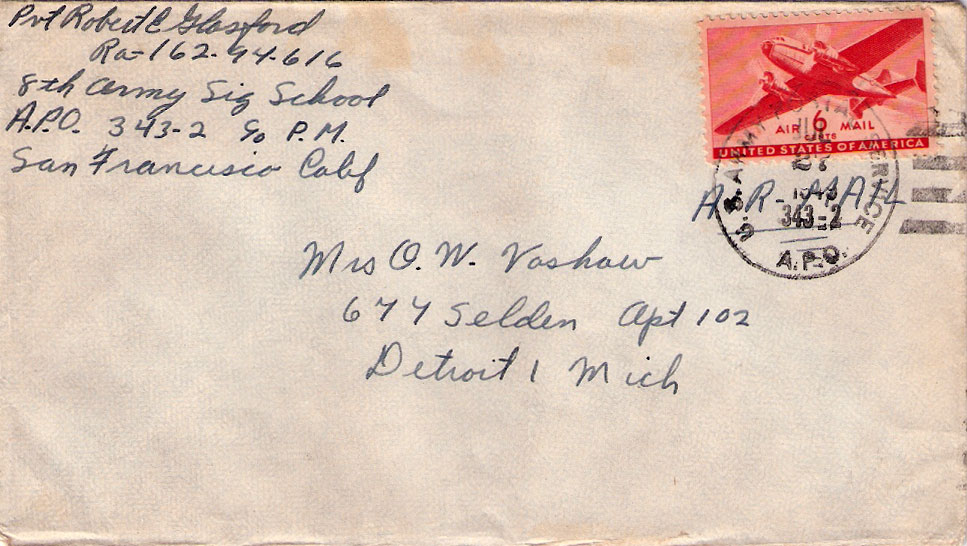 Pvt Robert E Glasford
Ra-162-94-616
8th Army Sig School
A.P.O. 343-2 c/o P.M.
San Francisco Calif
6 CENTS
AIR MAIL
UNITED STATES OF AMERICA
U.S. ARMY POSTAL SERVICE
343-2
A.P.O.
AIR-MAIL
Mrs O. W. Vashaw
677 Selden Apt 102
Detroit 1 Mich